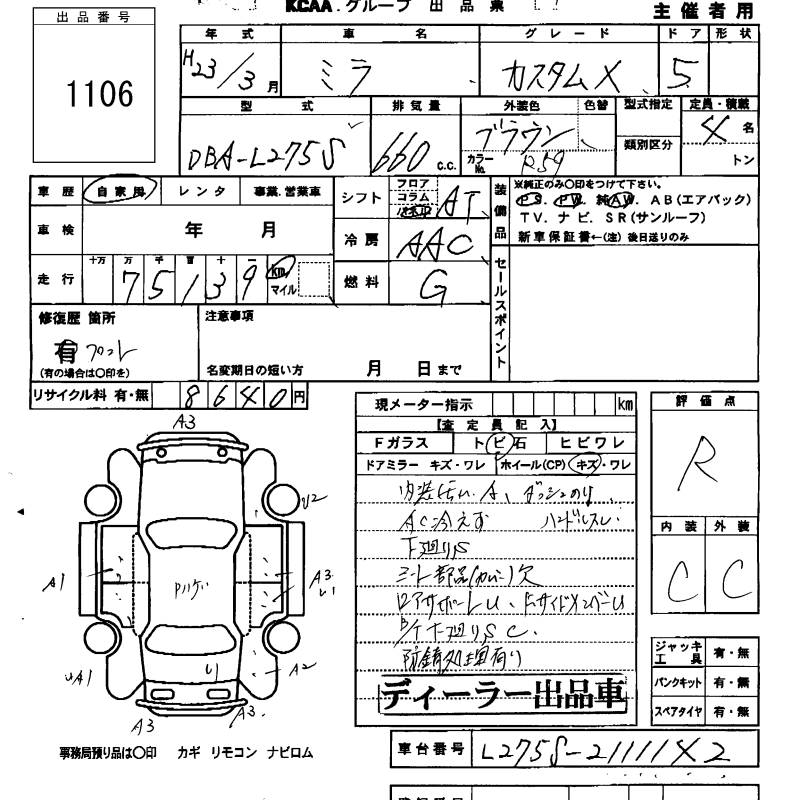 KCAA.グループ 出品票
主催者用
出品番号
1106
年式 車名 グレード ドア 形状
H23/3月 ミラ カスタムX 5
型式 排気量 外装色 色替 型式指定 定員・積載
DBA-L275S 660 c.c. ブラウン カラーNo. R59 類別区分 4名
トン
車歴 自家用 レンタ 事業.営業車
シフト フロア コラム AT
装備品 ※純正のみ〇印をつけて下さい。
PS. PW. 純AW. AB(エアバック)
TV. ナビ. SR(サンルーフ)
新車保証書←(注)後日送りのみ
車検 年 月
冷房 AAC
走行 十万 万 千 百 十 一
75139 km マイル
燃料 G
セールスポイント
修復歴 箇所
有 フロント
(有の場合は〇印を)
注意事項
名変期日の短い方 月 日まで
リサイクル料 有・無 8640円
現メーター指示 km
【査定員記入】
Fガラス トビ石 ヒビワレ
ドアミラー キズ・ワレ ホイール(CP) キズ・ワレ
AC冷えず ハンドルスレ
下廻りS
欠
下廻りSC.
防錆処理有り
ディーラー出品車
評価点
R
内装 外装
C C
ジャッキ工具 有・無
パンクキット 有・無
スペアタイヤ 有・無
A3
U2
A1
A3
U1
UA1
U1
A2
A3
A3.
事務局預り品は〇印 カギ リモコン ナビロム
車台番号 L275S-2111142